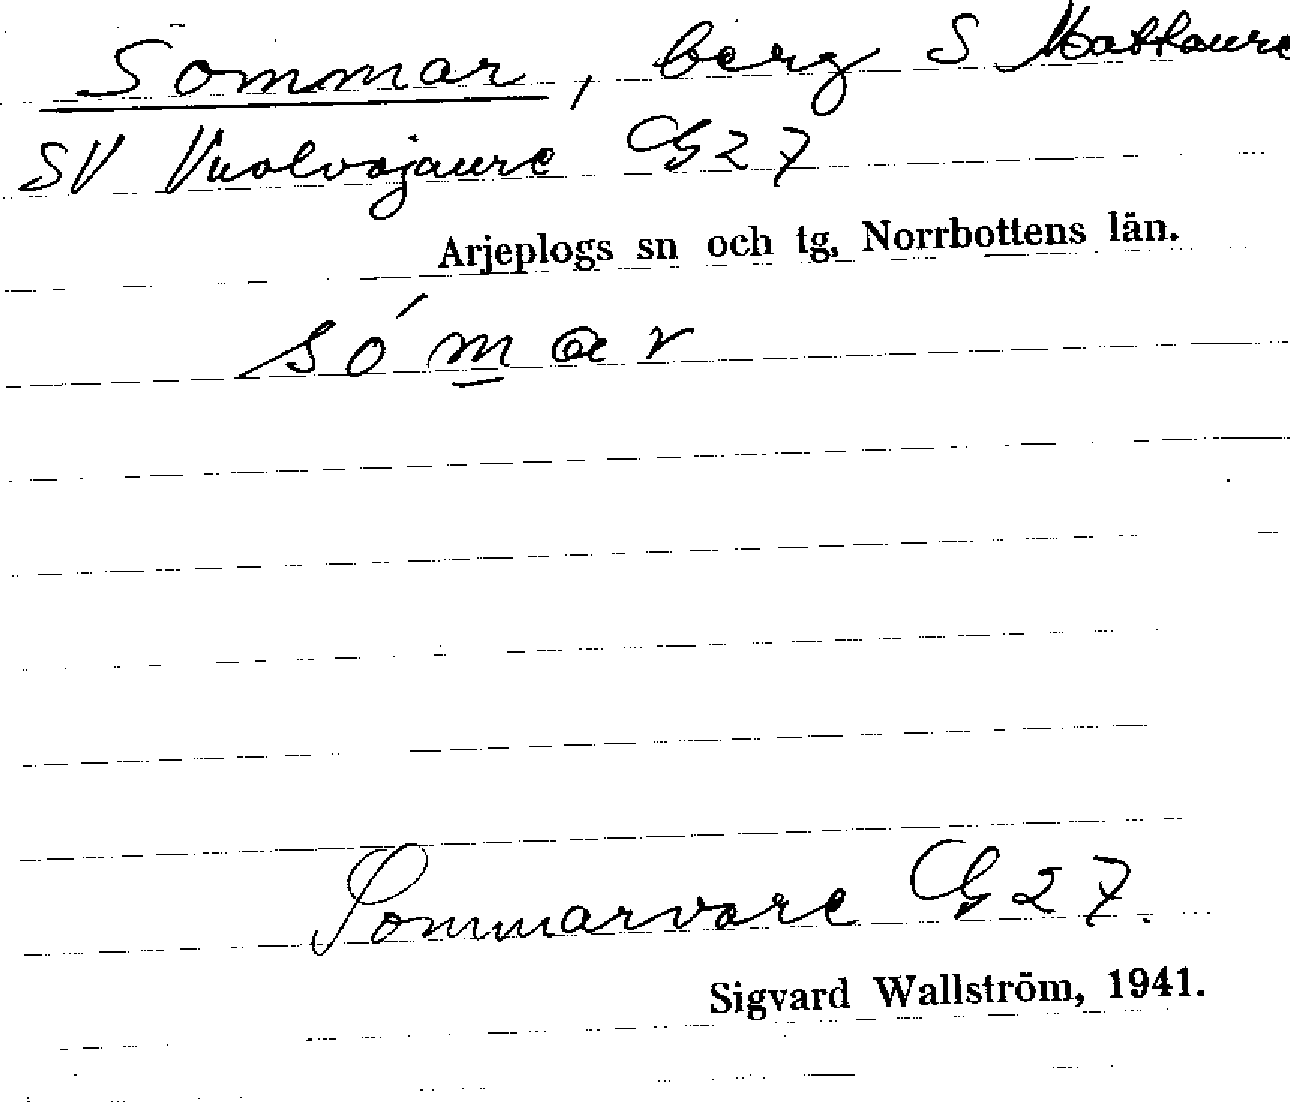 Sommar, berg S Mattaure
SV Vuolvojaure G 27
Arjeplogs sn och tg, Norrbottens län.
sómar
Sommarvare G 27.
Sigvard Wallström, 1941.